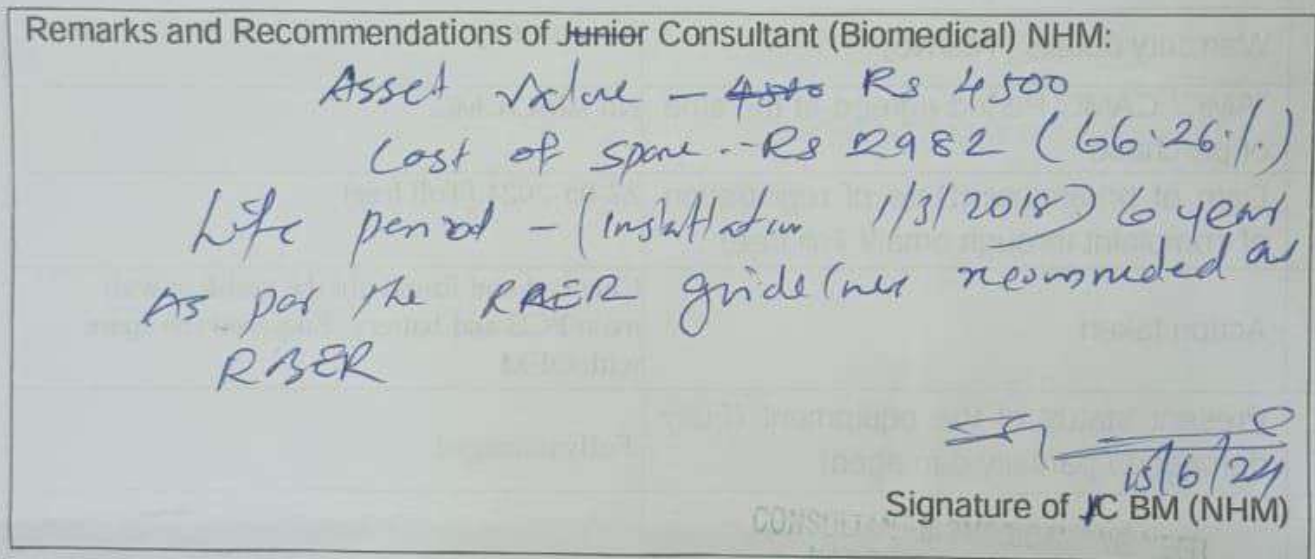 Remarks and Recommendations of Junior Consultant (Biomedical) NHM:
Asset value - 4500 Rs 4500
Cost of spare - Rs 2982 (66.26%)
Life period - (Installation 1/3/2018) 6 year
As per the RBER guidelines recommended as
RBER
15/6/24
Signature of JC BM (NHM)